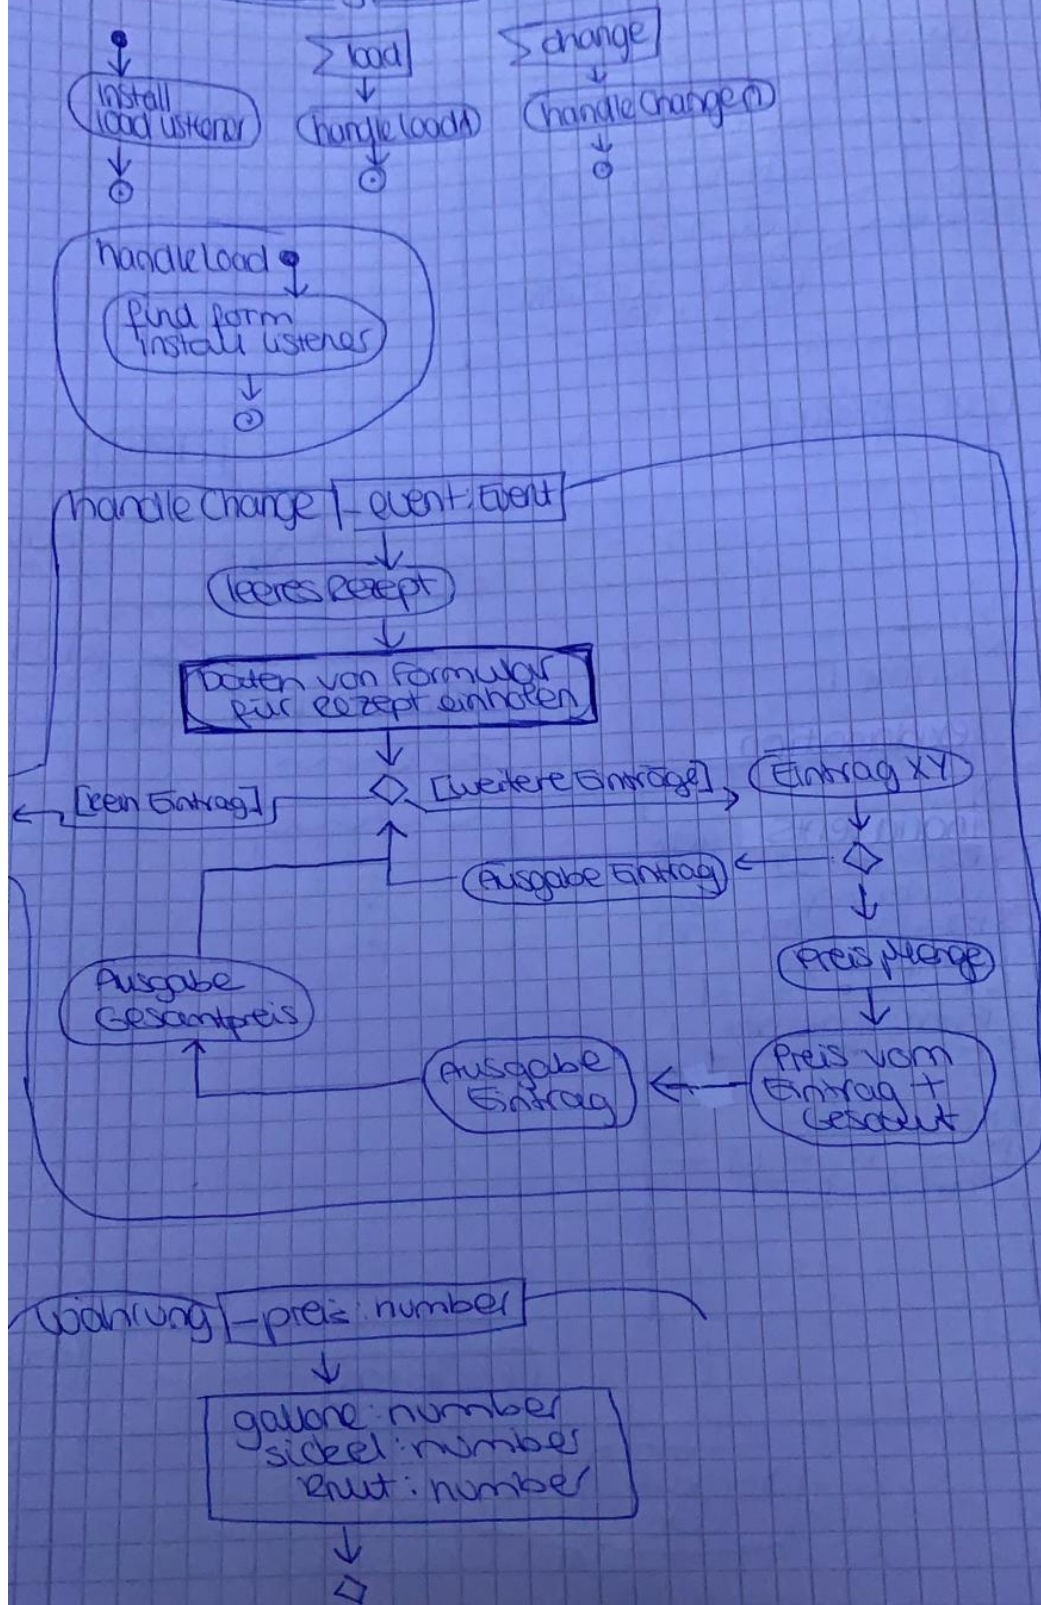 load
change
install
load listener
handleload
handleChange()
handleload
find form
install listener
handleChange
- event: Event
leeres Rezept
Daten von Formular
für Rezept einholen
[kein Eintrag]
[weitere Einträge]
Eintrag XY
Ausgabe Eintrag
Preis Menge
Ausgabe
Gesamtpreis
Ausgabe
Eintrag
Preis vom
Eintrag +
Gesamt
Währung
- preis: number
gallone: number
sickel: number
knut: number